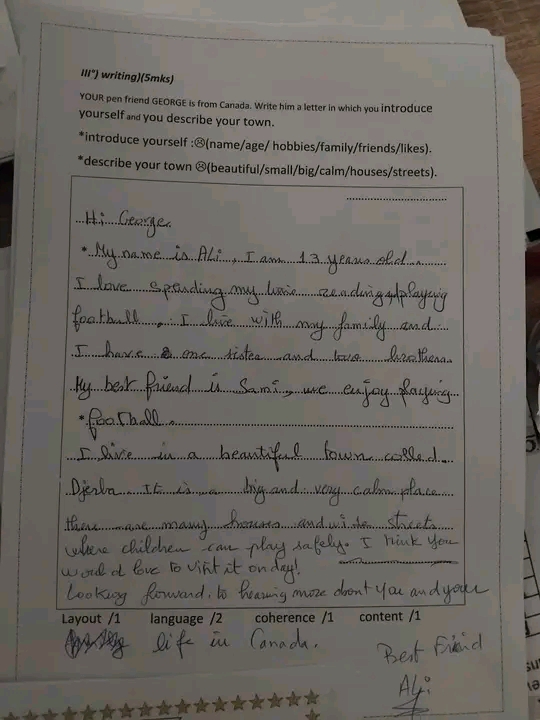 III°) writing)(5mks)
YOUR pen friend GEORGE is from Canada. Write him a letter in which you introduce
yourself and you describe your town.
*introduce yourself :☹(name/age/ hobbies/family/friends/likes).
*describe your town ☹(beautiful/small/big/calm/houses/streets).
Hi George,
* My name is Ali, I am 13 years old
I love spending my time reading playing
football. I live with my family and
I have one sister and brothers.
My best friend is Sami, we enjoy playing
* football.
I live in a beautiful town called
Djerba. It is a big and very calm place
there are many houses and streets
where children can play safely. I think you
would love to visit it on day!
Looking forward to hearing more about you and your
Layout /1 language /2 coherence /1 content /1
life in Canada.
Best Friend
Ali